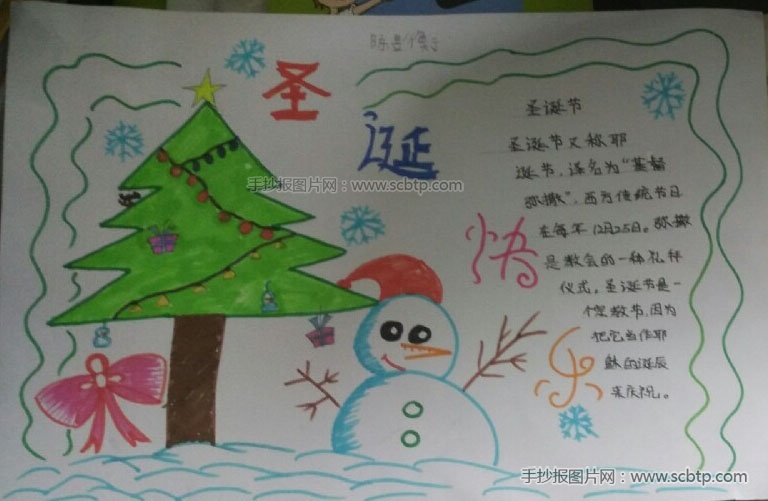 圣
诞
快
乐
手抄报图片网：www.scbtp.com
圣诞节
圣诞节又称耶
诞节，译名为“基督
弥撒”，西方传统节日
在每年12月25日。弥撒
是教会的一种礼拜
仪式，圣诞节是一
个宗教节，因为
把它当作耶
稣的诞辰
来庆祝。
手抄报图片网：www.scbtp.com